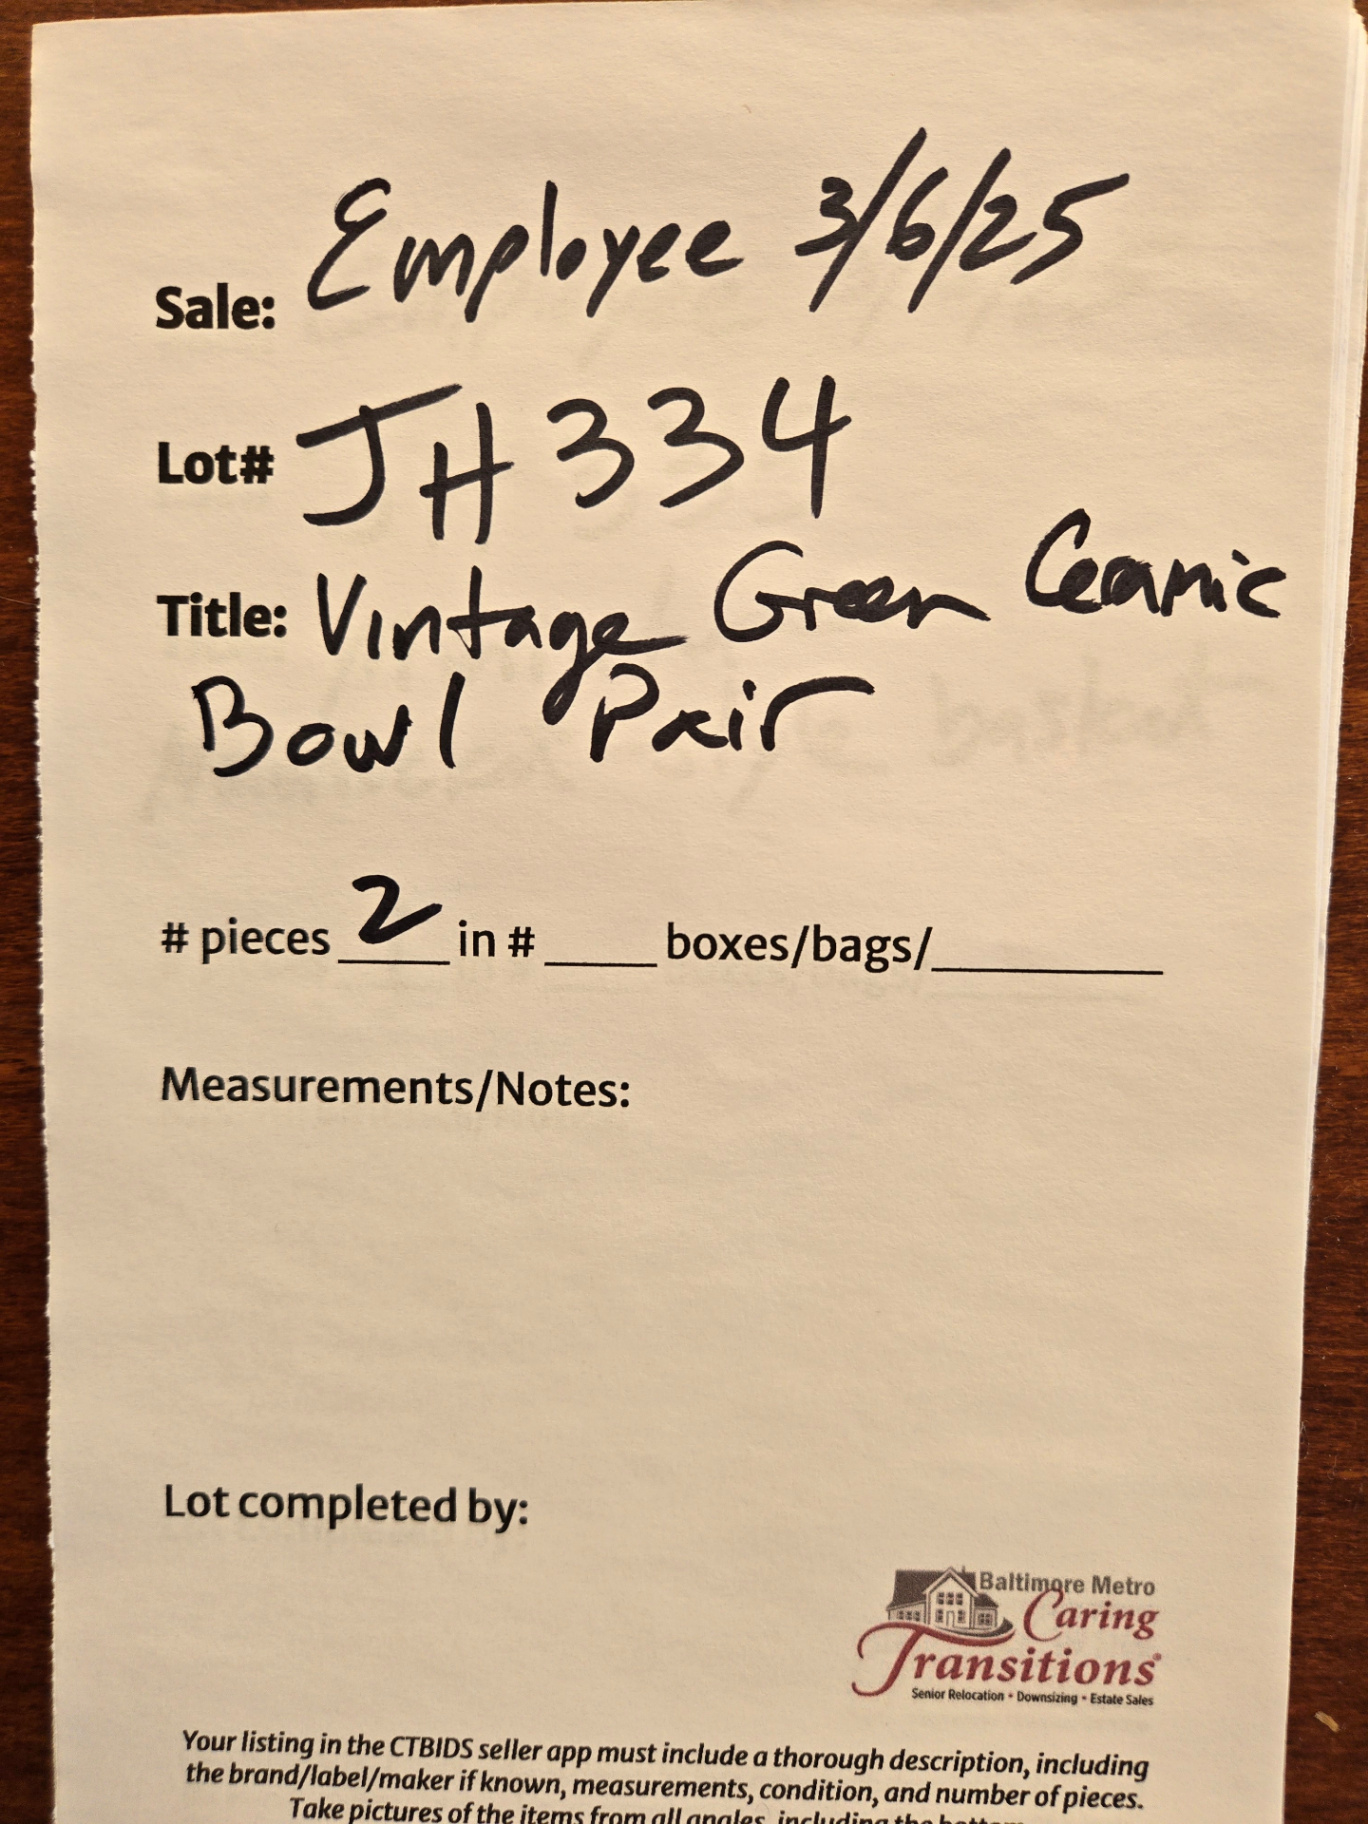 Sale: Employee 3/6/25
Lot# JH334
Title: Vintage Green Ceramic
Bowl Pair
# pieces 2 in # ____ boxes/bags/__________
Measurements/Notes:
Lot completed by:
Baltimore Metro
Caring
Transitions®
Senior Relocation • Downsizing • Estate Sales
Your listing in the CTBIDS seller app must include a thorough description, including
the brand/label/maker if known, measurements, condition, and number of pieces.
Take pictures of the items from all angles, including the bottom